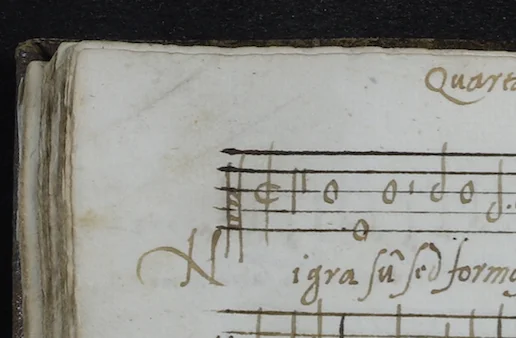 Quarta
Nigra sũ sed formo